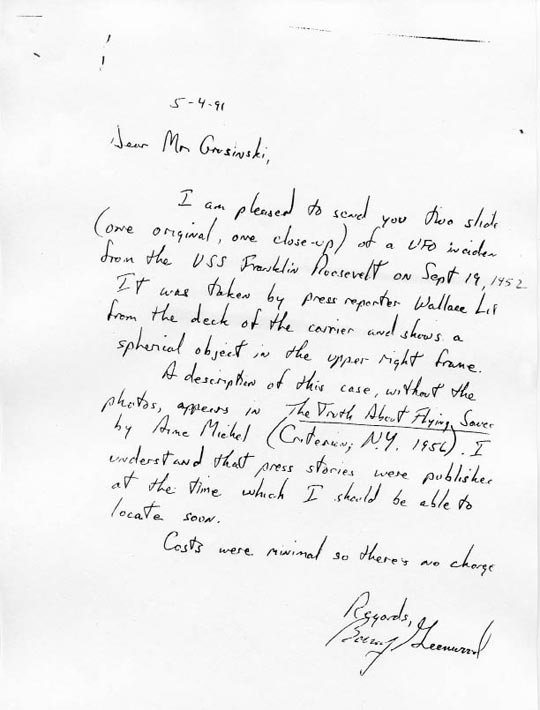 5-4-91
Dear Mr. Grusinski,
I am pleased to send you two slide
(one original, one close-up) of a UFO inciden
from the USS Franklin Roosevelt on Sept 19, 1952
It was taken by press reporter Wallace Lit
from the deck of the carrier and shows a
spherical object in the upper right frame.
A description of this case, without the
photos, appears in The Truth About Flying Saucer
by Aime Michel (Criterion; N.Y. 1956). I
understand that press stories were publishe
at the time which I should be able to
locate soon.
Costs were minimal so there's no charge
Regards,
Barry Greenwood